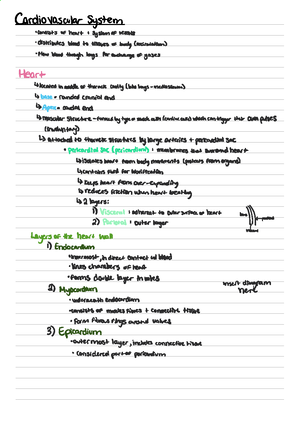 Cardiovascular System
• consists of heart + system of vessels
• distributes blood to tissues of body (
• flow blood through lungs for exchange of gases
Heart
↳ located in middle of thoracic cavity (b/w lungs - mediastinum)
↳ base = rounded cranial end
↳ Apex = caudal end
↳ muscular structure - formed by type of muscle cells (cardiac cells) which can trigger their own pulses
(involuntary)
↳ attached to thoracic structures by large arteries + pericardial sac
• pericardial sac (pericardium) : membranes that surround heart
↳ isolates heart from body movements (protects from organs)
↳ contains fluid for lubrication
↳ keeps heart from over-expanding
↳ reduces friction when heart beating
↳ 2 layers:
1) Visceral : adherent to outer surface of heart
2) Parietal : outer layer
parietal
visceral
Layers of the heart wall
1) Endocardium
• innermost, in direct contact w/ blood
• lines chambers of heart
• forms double layer in valves
2) Myocardium
• underneath endocardium
• consists of muscle fibres + connective tissue
• form fibrous rings around valves
insert diagram
here
3) Epicardium
• outermost layer, includes connective tissue
• considered part of pericardium